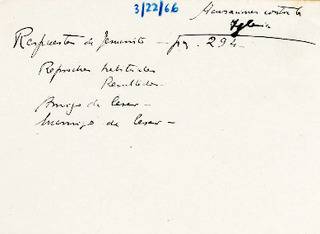 3/22/66
Acusaciones contra la
Iglesia
Respuestas de Jesucristo — pg. 294 —
Reproches habituales
Resultados.
Amigo de Cesar —
Enemigo de Cesar —